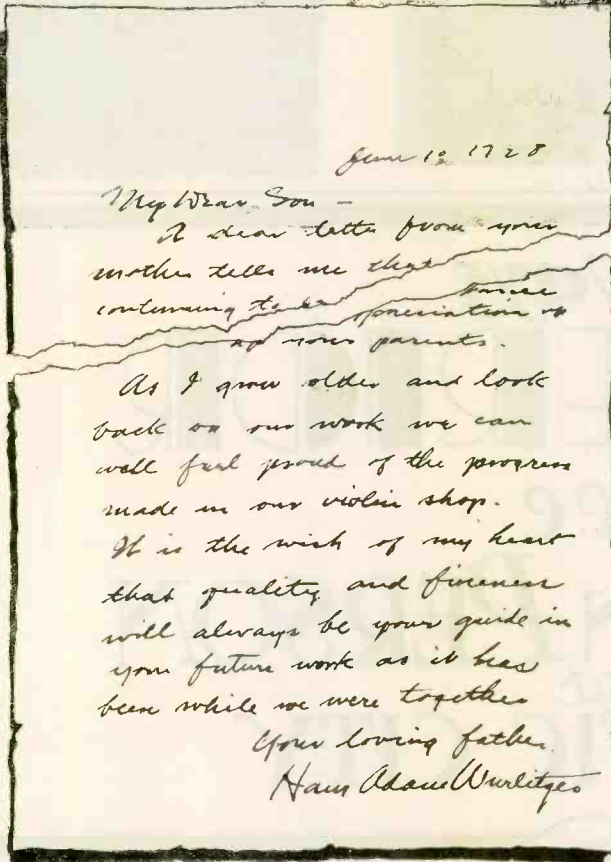 June 10 1728
My Dear Son -
A dear letter from your
mother tells me that
continuing to be
preciation of
as your parents.
As I grow older and look
back on our work we can
well feel proud of the progress
made in our violin shop.
It is the wish of my heart
that quality and fineness
will always be your guide in
your future work as it has
been while we were together
Your loving father.
Hans Adam Wurlitzer